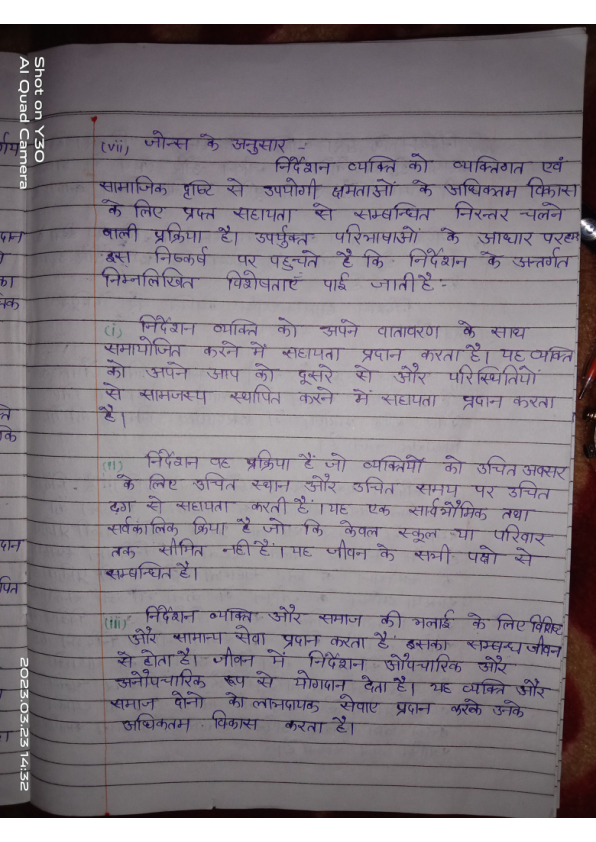 (vii) जोन्स के अनुसार -
निर्देशन व्यक्ति को व्यक्तिगत एवं
सामाजिक दृष्टि से उपयोगी क्षमताओं के अधिकतम विकास
के लिए प्रदत्त सहायता से सम्बन्धित निरन्तर चलने
वाली प्रक्रिया है। उपर्युक्त परिभाषाओं के आधार पर हम
इस निष्कर्ष पर पहुचते है कि निर्देशन के अन्तर्गत
निम्नलिखित विशेषताएँ पाई जाती है -
(i) निर्देशन व्यक्ति को अपने वातावरण के साथ
समायोजित करने में सहायता प्रदान करता है। यह व्यक्ति
को अपने आप को दूसरे से और परिस्थितियों
से सामजस्य स्थापित करने में सहायता प्रदान करता
है।
(ii) निर्देशन वह प्रक्रिया है जो व्यक्तियों को उचित अवसर
के लिए उचित स्थान और उचित समय पर उचित
ढग से सहायता करती है। यह एक सार्वभौमिक तथा
सर्वकालिक क्रिया है जो कि केवल स्कूल या परिवार
तक सीमित नही है। यह जीवन के सभी पक्षो से
सम्बन्धित है।
(iii) निर्देशन व्यक्ति और समाज की भलाई के लिए विशिष्ट
और सामान्य सेवा प्रदान करता है इसका सम्बन्ध जीवन
से होता है। जीवन में निर्देशन औपचारिक और
अनौपचारिक रूप से योगदान देता है। यह व्यक्ति और
समाज दोनो को लाभदायक सेवाए प्रदान करके उनके
अधिकतम विकास करता है।
Shot on Y30
AI Quad Camera
2023.03.23 14:32